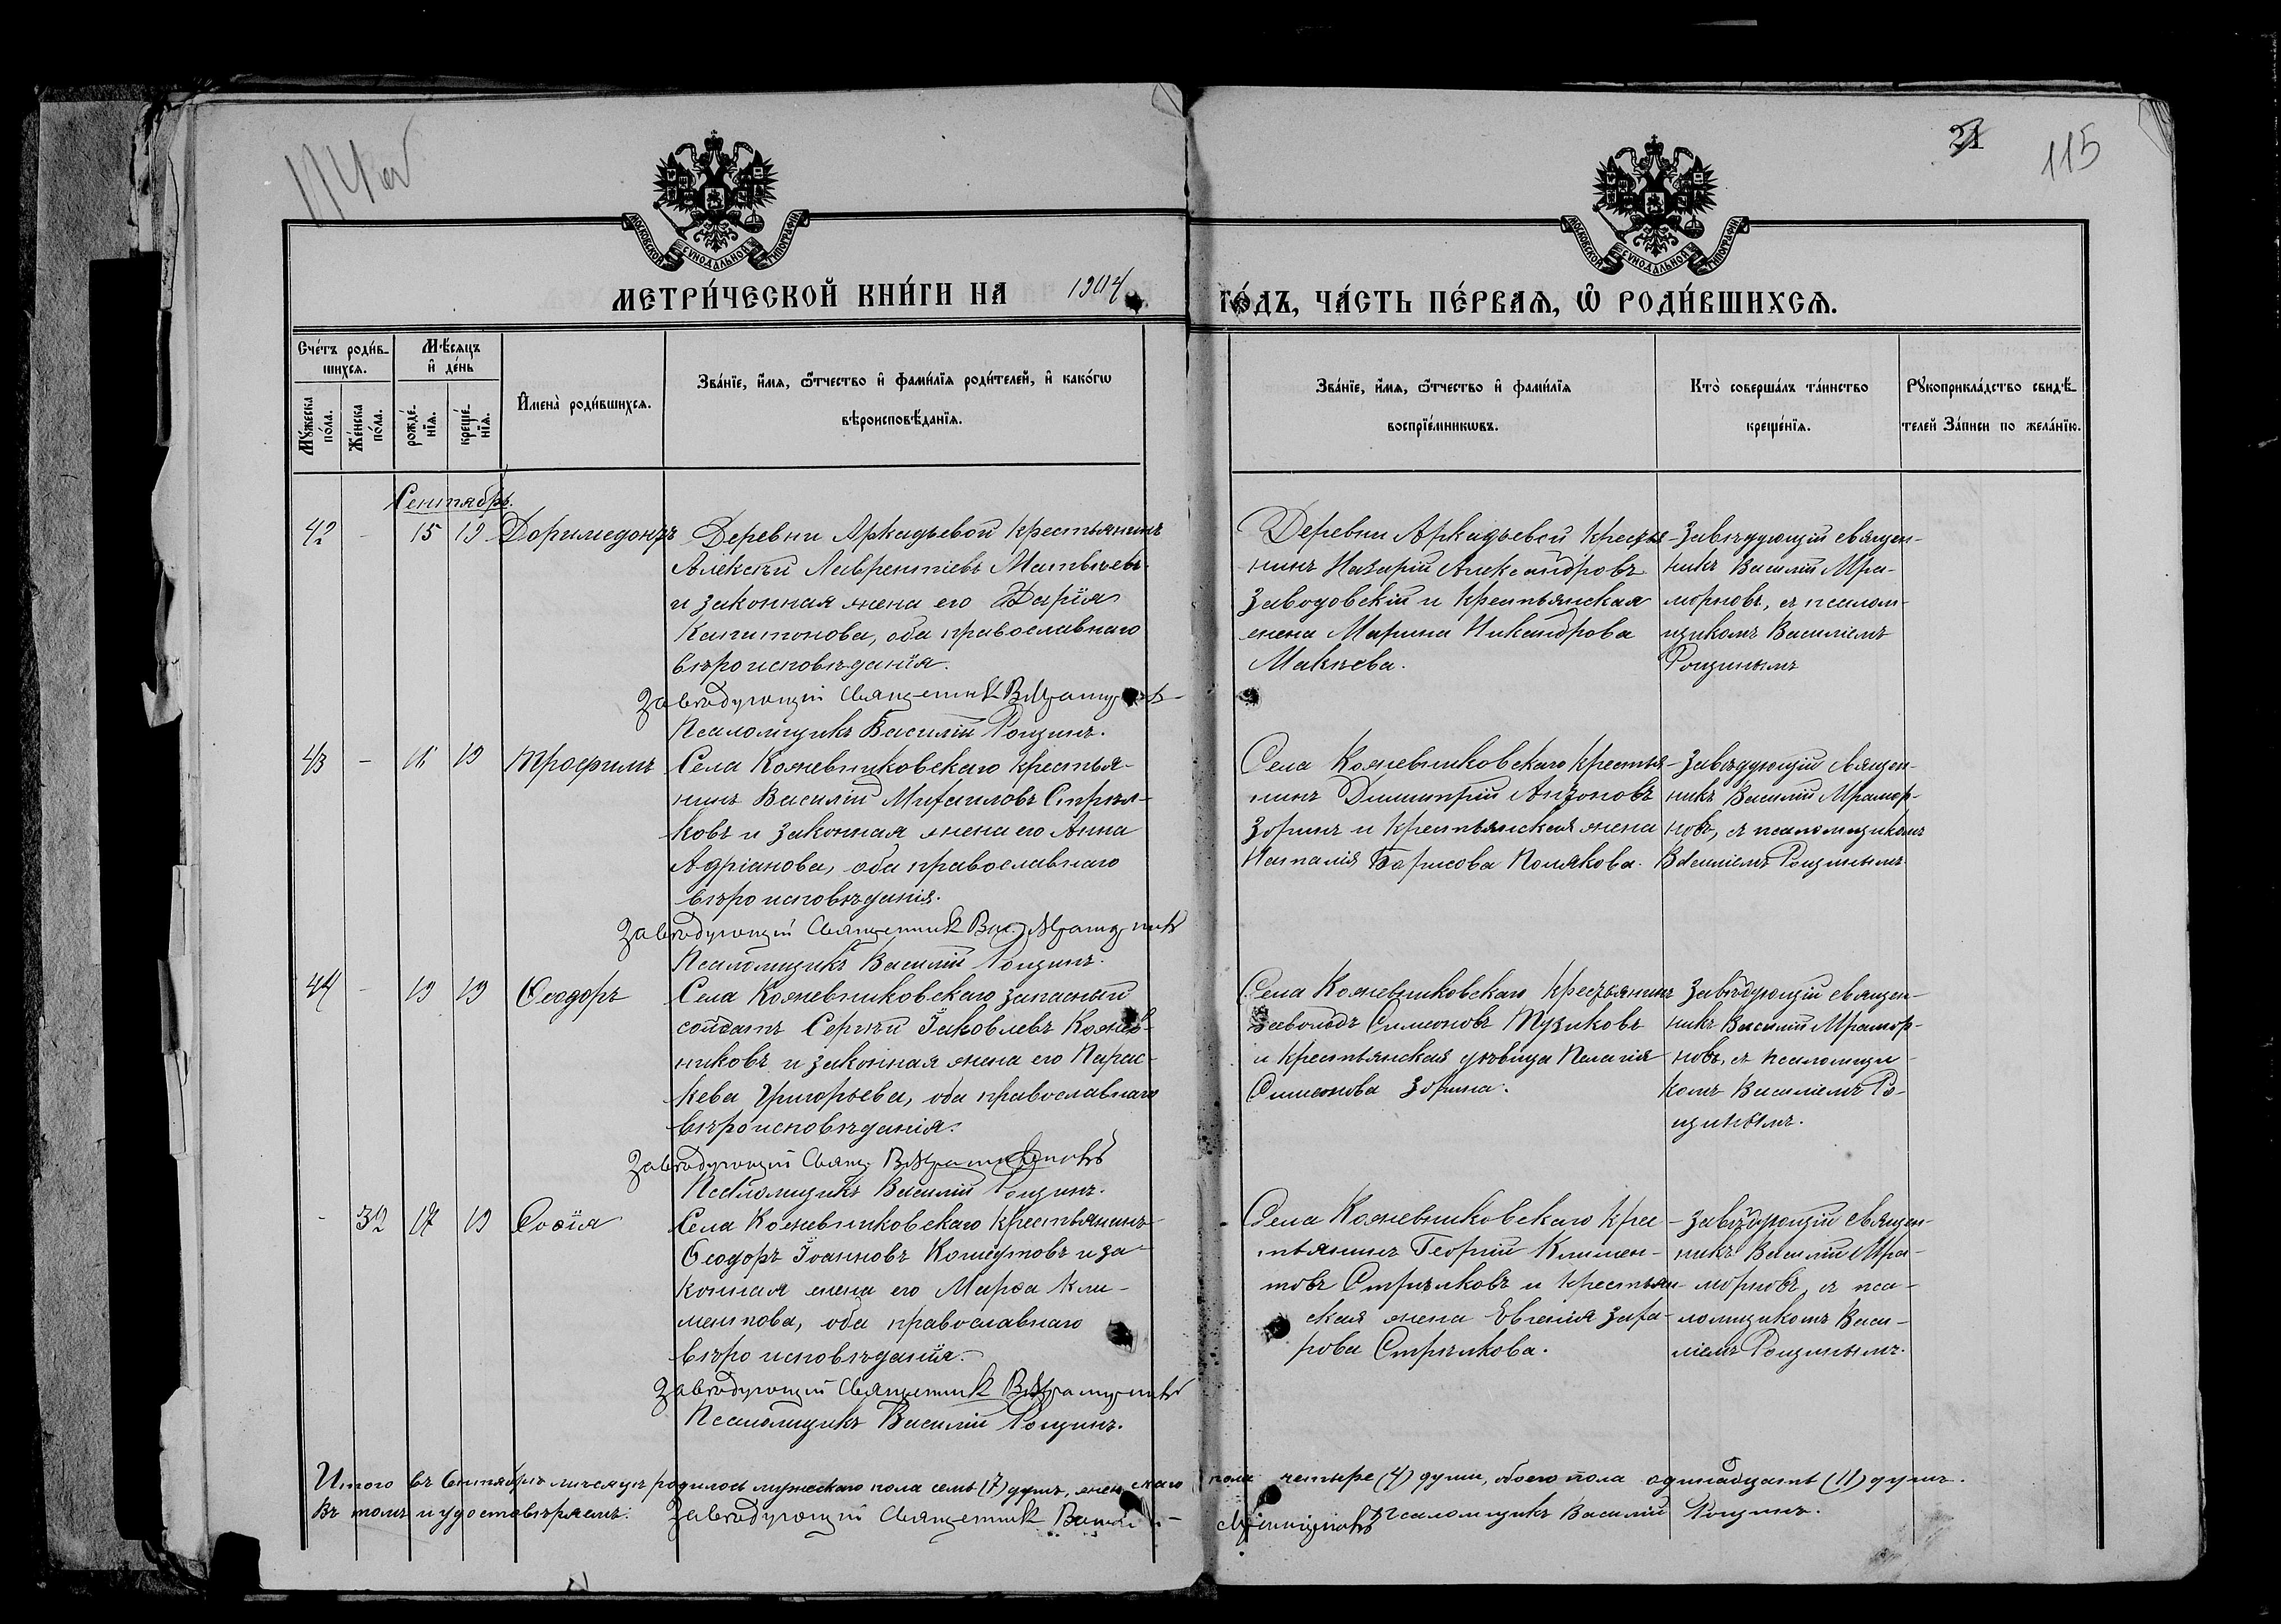 114 об
21
115
МОСКОВСКОЙ СѴНОДАЛЬНОЙ ТИПОГРАФІИ
МОСКОВСКОЙ СѴНОДАЛЬНОЙ ТИПОГРАФІИ
МЕТРИ́ЧЕСКОЙ КНИ́ГИ НА 1904 ГО́ДЪ, ЧА́СТЬ ПЕ́РВАЯ, Ѽ РОДИ́ВШИХСЯ.
Сче́тъ роди́в-
шихся.
Мѣ́сяцъ
и҆ де́нь
Му́жеска
по́ла.
Же́нска
по́ла.
рожде́-
нїя.
креще́-
нїя.
И҆мена̀ роди́вшихся.
Зва́нїе, и҆́мя, ѻ҆́тчество и҆ фами́лїя роди́телей, и҆ како́гѡ
вѣроисповѣ́данїя.
Зва́нїе, и҆́мя, ѻ҆́тчество и҆ фами́лїя
воспрїе́мникѡвъ.
Кто̀ соверша́лъ та́инство
креще́нїя.
Рꙋкоприкла́дство свидѣ́-
телей За́писи по жела́нїю.
Сентябрь.
42 - 15 19 Доримедонтъ
Деревни Аркадьевой крестьянинъ
Алексѣй Лаврентіевъ Матвѣевъ
и законная жена его Дарія
Капитонова, оба православнаго
вѣроисповѣданія.
Завѣдующій Священникъ В. Мраморновъ
Псаломщикъ Василій Рощинъ.
Деревни Аркадьевой кресть-
нинъ Назарій Александровъ
Заводовскій и крестьянская
жена Марина Никандрова
Макѣева.
Завѣдующій священ-
никъ Василій Мра-
морновъ, съ псалом-
щикомъ Василіемъ
Рощинымъ
43 - 16 19 Трофимъ
Села Кожевниковскаго крестья-
нинъ Василій Михаиловъ Стрѣл-
ковъ и законная жена его Анна
Адріанова, оба православнаго
вѣроисповѣданія.
Завѣдующій Священникъ Вас. Мраморновъ
Псаломщикъ Василій Рощинъ.
Села Кожевниковскаго крестья-
нинъ Димитрій Антоновъ
Зоринъ и крестьянская жена
Наталія Борисова Полякова.
Завѣдующій священ-
никъ Василій Мрамор-
новъ, съ псаломщикомъ
Василіемъ Рощинымъ.
44 - 19 19 Ѳеодоръ
Села Кожевниковскаго запасный
солдатъ Сергѣй Іаковлевъ Кожев-
никовъ и законная жена его Парас-
кева Григорьева, оба православнаго
вѣроисповѣданія.
Завѣдующій Свящ. В. Мраморновъ
Псаломщикъ Василій Рощинъ.
Села Кожевниковскаго крестьянинъ
Всеволодъ Симеоновъ Пузиковъ
и крестьянская дѣвица Пелагія
Симеонова Зорина.
Завѣдующій священ-
никъ Василій Мрамор-
новъ, съ псаломщи-
комъ Василіемъ Ро-
щинымъ.
- 32 17 19 Софія
Села Кожевниковскаго крестьянинъ
Ѳеодоръ Іоанновъ и за-
конная жена его Марѳа Кли-
ментова, оба православнаго
вѣроисповѣданія.
Завѣдующій Священникъ В. Мраморновъ
Псаломщикъ Василій Рощинъ.
Села Кожевниковскаго кре-
стьянинъ Георгій Климен-
товъ Стрѣлковъ и крестьян-
ская жена Евгенія Заха-
рова Стрѣлкова.
Завѣдующій священ-
никъ Василій Мра-
морновъ, съ пса-
ломщикомъ Васи-
ліемъ Рощинымъ.
Итого въ Сентябрѣ мѣсяцѣ родилось мужескаго пола семь (7) душъ, женскаго пола четыре (4) души, обоего пола одинадцать (11) душъ.
Въ томъ и удостовѣряемъ: Завѣдующій Священникъ Василій Мраморновъ Псаломщикъ Василій Рощинъ.